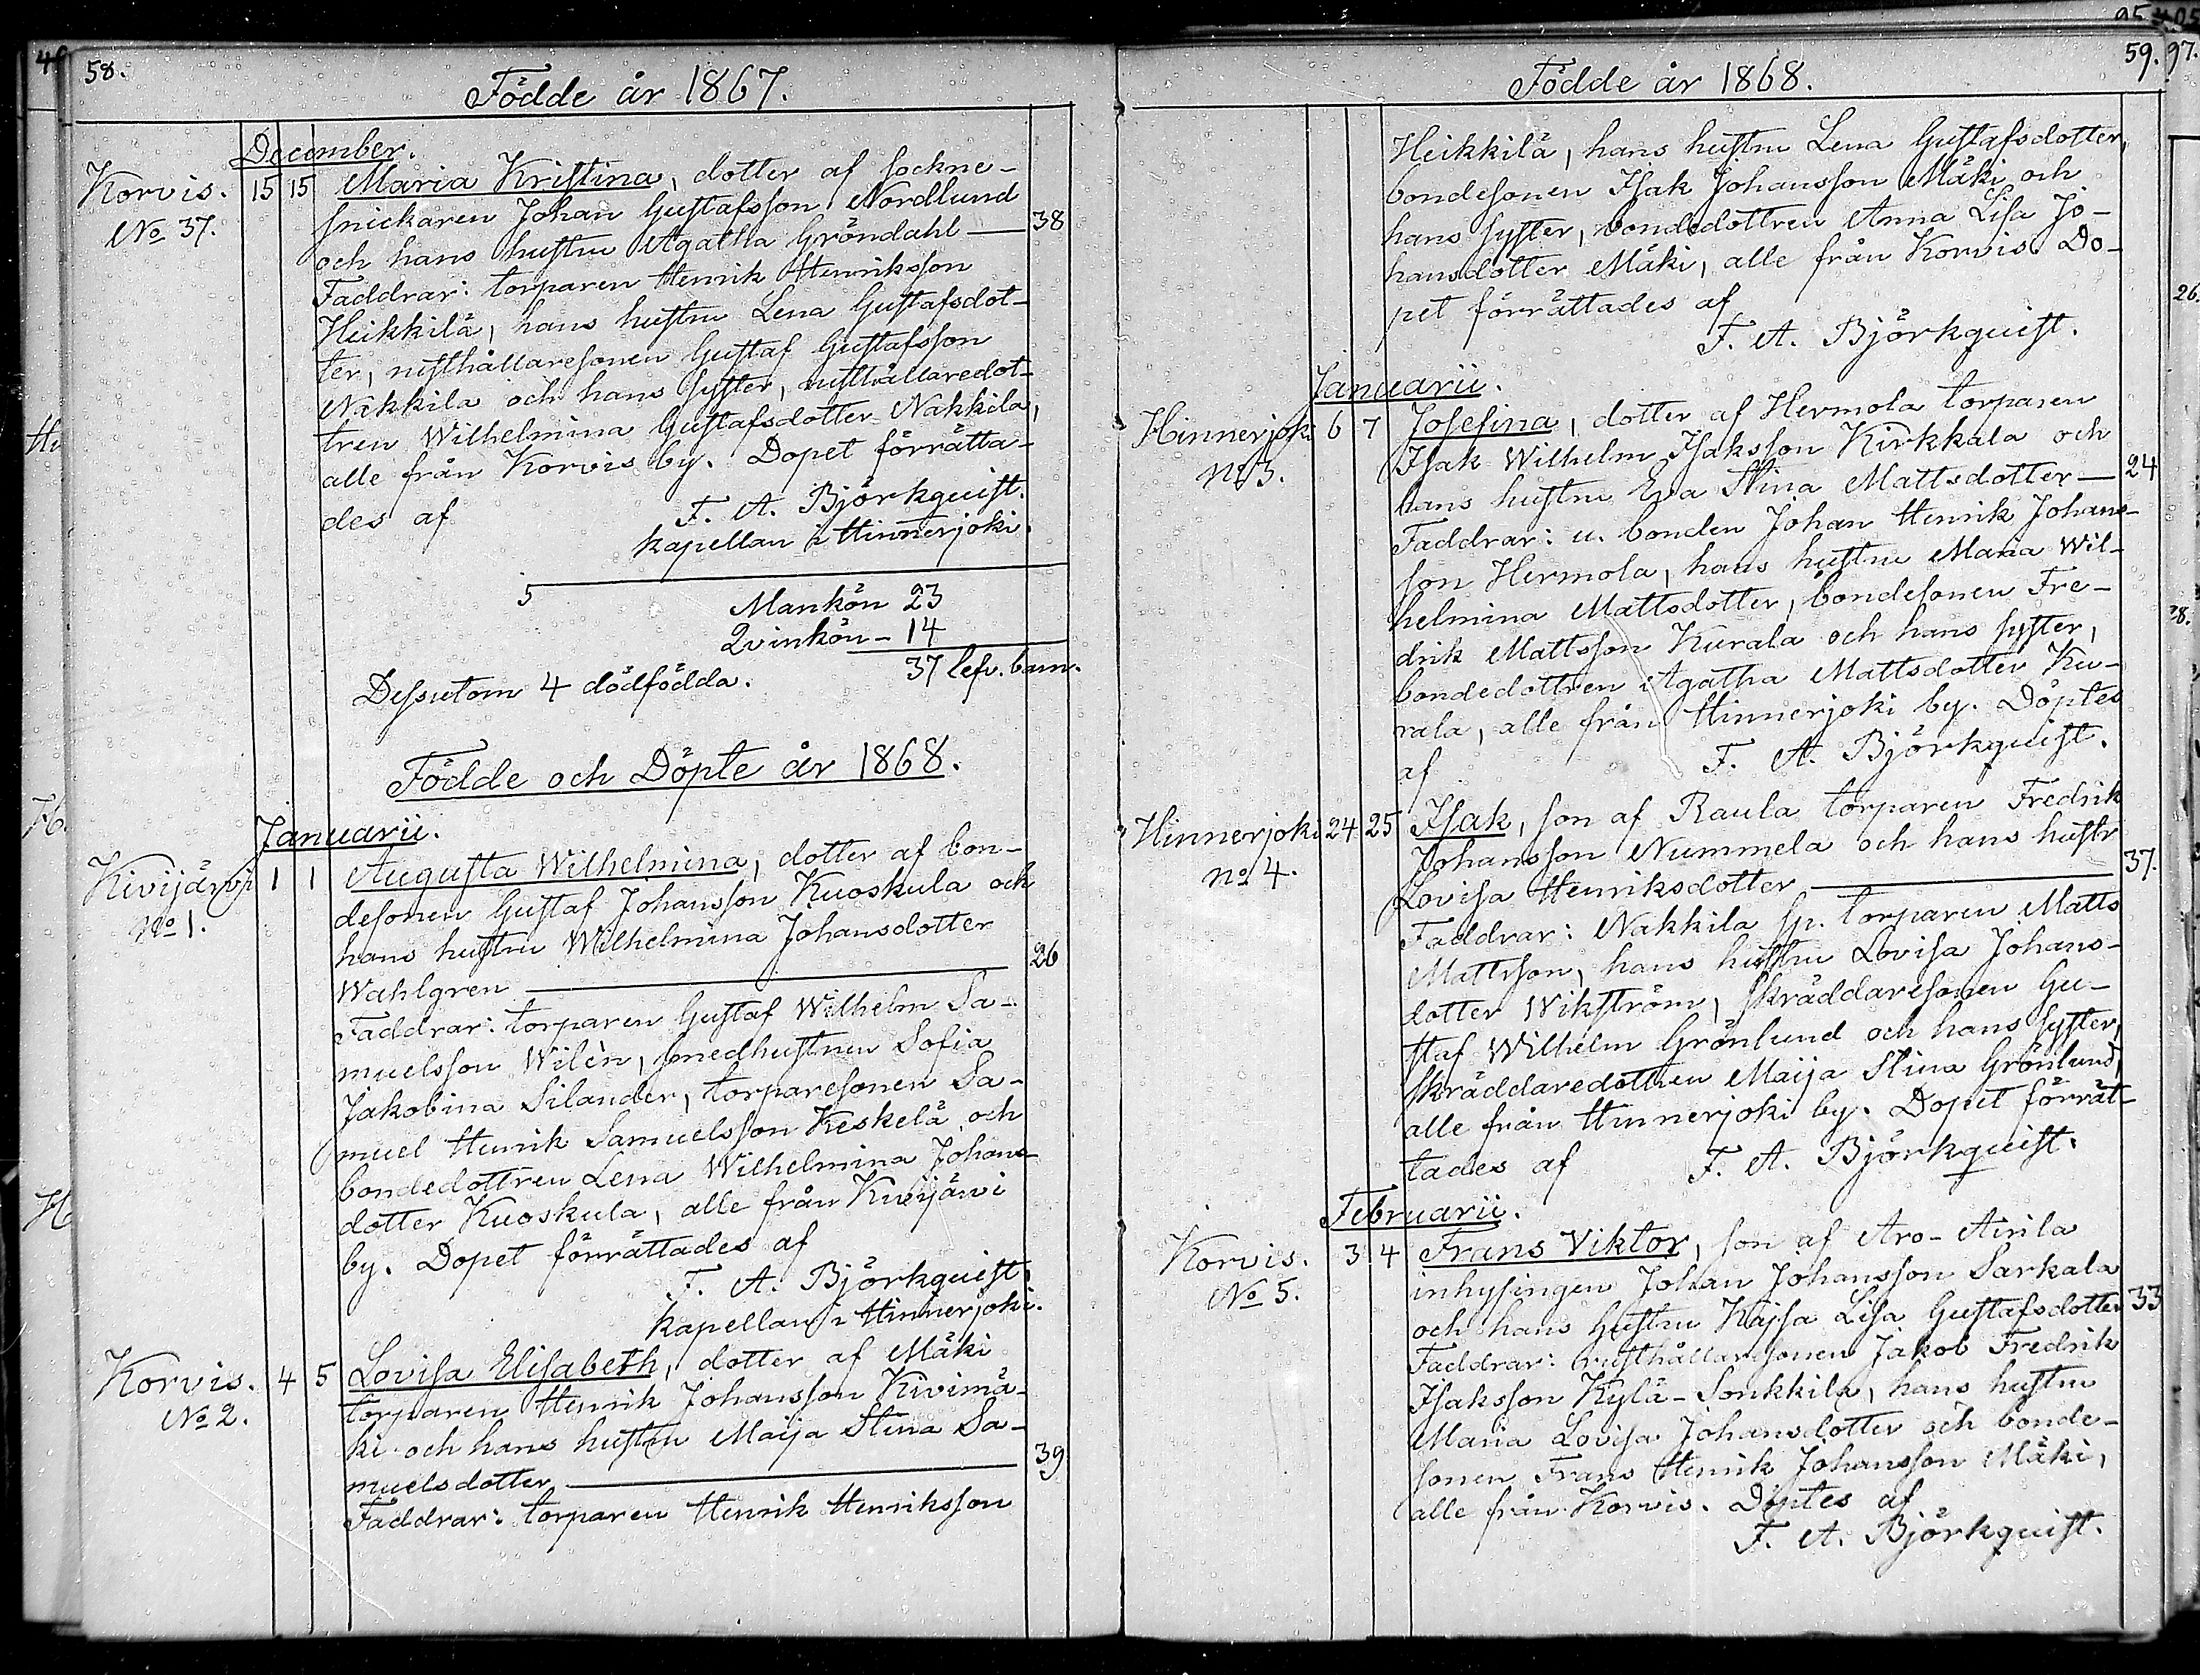 58.
Födde år 1867.
December.
Korvis. 15 15 Maria Kristina, dotter af sockne-
No 37. snickaren Johan Gustafsson Nordlund
och hans hustru Agatha Gröndahl — 38
Faddrar: torparen Henrik Henriksson
Heikkilä, hans hustru Lena Gustafsdot-
ter, rusthållaresonen Gustaf Gustafsson
Nakkila och hans syster, rusthållaredot-
tren Wilhelmina Gustafsdotter Nakkila,
alle från Korvis by. Dopet förrätta-
des af F. A. Björkquist.
kapellan i Hinnerjoki.
5
Mankön 23
Qvinkön - 14
37 lefv. barn.
Dessutom 4 dödfödda.
Födde och Döpte år 1868.
Januarii.
Kivijärvi 1 1 Augusta Wilhelmina, dotter af bon-
No 1. desonen Gustaf Johansson Kuoskula och
hans hustru Wilhelmina Johansdotter
Wahlgren — 26
Faddrar: torparen Gustaf Wilhelm Sa-
muelsson Wilèn, smedhustrun Sofia
Jakobina Silander, torparesonen Sa-
muel Henrik Samuelsson Keskelä och
bondedottren Lena Wilhelmina Johans-
dotter Kuoskula, alle från Kivijärvi
by. Dopet förrättades af
F. A. Björkquist.
kapellan i Hinnerjoki.
Korvis. 4 5 Lovisa Elisabeth, dotter af Mäki
No 2. torparen Henrik Johansson Kivimä-
ki och hans hustru Maija Stina Sa-
muelsdotter — 39
Faddrar: torparen Henrik Henriksson
59.
Födde år 1868.
Heikkilä, hans hustru Lena Gustafsdotter,
bondesonen Isak Johansson Mäki och
hans syster, bondedottren Anna Lisa Jo-
hansdotter Mäki, alle från Korvis. Do-
pet förrättades af
F. A. Björkquist.
Januarii.
Hinnerjoki 6 7 Josefina, dotter af Hermola torparen
No 3. Isak Wilhelm Isaksson Kirkkala och
hans hustru Eva Stina Mattsdotter — 24
Faddrar: u. bonden Johan Henrik Johans-
son Hermola, hans hustru Maria Wil-
helmina Mattsdotter, bondesonen Fre-
drik Mattsson Kurala och hans syster,
bondedottren Agatha Mattsdotter Ku-
rala, alle från Hinnerjoki by. Döptes
af F. A. Björkquist.
Hinnerjoki 24 25 Isak, son af Raula torparen Fredrik
No 4. Johansson Nummela och hans hustr
Lovisa Henriksdotter — 37.
Faddrar: Nakkila sp. torparen Matts
Mattsson, hans hustru Lovisa Johans-
dotter Wikström, skräddaresonen Gu-
staf Wilhelm Grönlund och hans syster,
skräddaredottren Maija Stina Grönlund,
alle från Hinnerjoki by. Dopet förrät-
tades af F. A. Björkquist.
Februarii.
Korvis. 3 4 Frans Viktor, son af Aro-Airila
No 5. inhysingen Johan Johansson Sarkala
och hans hustru Kajsa Lisa Gustafsdotter 33
Faddrar: rusthållaresonen Jakob Fredrik
Isaksson Kylä-Sonkkila, hans hustru
Maria Lovisa Johansdotter och bonde-
sonen Frans Henrik Johansson Mäki,
alle från Korvis. Döptes af
F. A. Björkquist.
97.
26.
28.